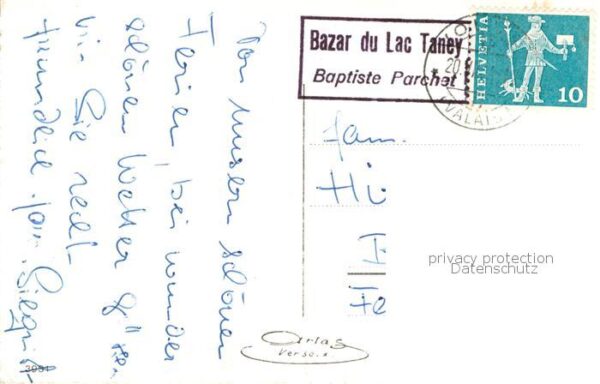 Von unsern schönen
Ferien, bei wunder
schönen Wetter grüssen
wir Sie recht
freundlich Fam. Siegrist
Bazar du Lac Taney
Baptiste Parchet
HELVETIA
10
VALAIS
20
Fam.
Hü
privacy protection
Datenschutz
Arlas
Versoix
3991